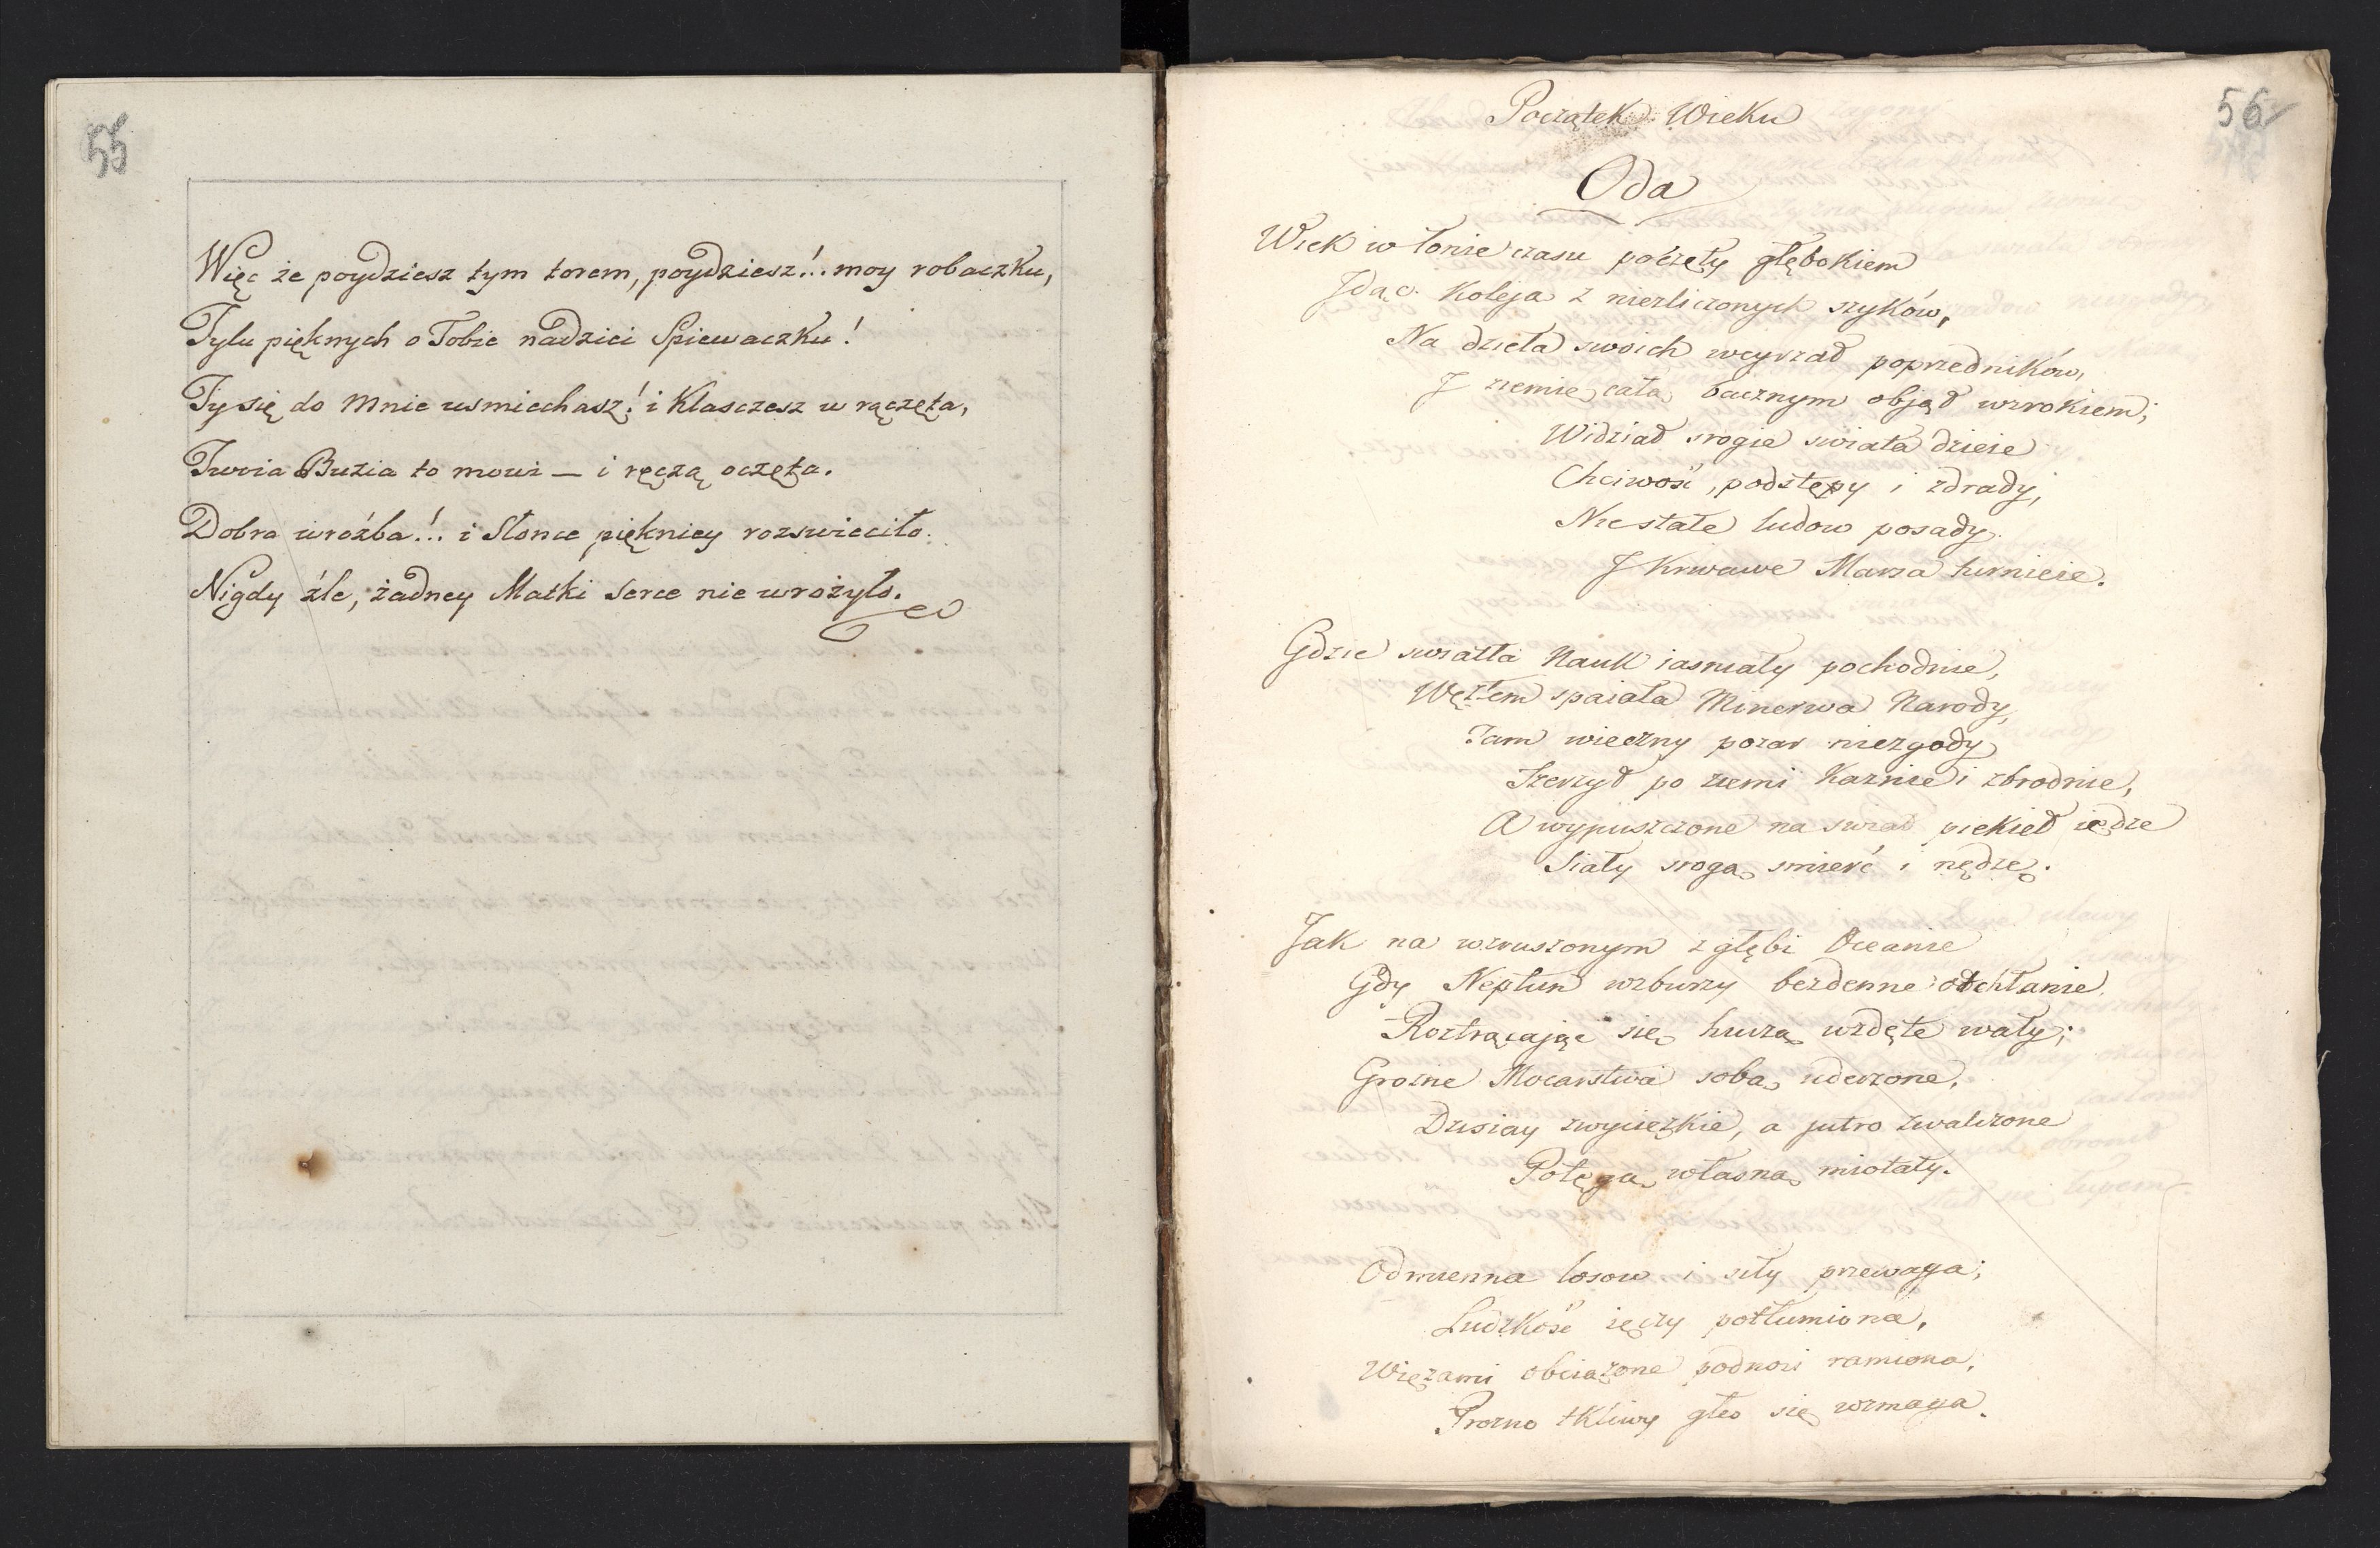 55
Więc że poydziesz tym torem, poydziesz!.. moy robaczku,
Tylu pięknych o Tobie nadziei Spiewaczku!
Ty się do mnie usmiechasz! i Klasczesz w rączęta,
Twoia Buzia to mowi — i ręczą oczęta.
Dobra wroźba!.. i Słonce piękniey rozswieciło.
Nigdy źle, żadney Matki serce nie wrożyło.
56
Początek Wieku
Oda
Wiek w łonie czasu poczęty głębokiem
Idąc koleją z niezliczonych szyków,
Na dzieła swoich weyrzał poprzedników,
I ziemię całą bacznym objął wzrokiem;
Widział srogie swiata dzieie
Chciwość, podstępy i zdrady,
Nie stałe ludow posady.
I krwawe Marsa turnieie.
Gdzie swiatła Nauk iasniały pochodnie,
Węzłem spaiała Minerwa Narody,
Tam wieczny pozar niezgody
Szerzył po ziemi Kaznie i zbrodnie,
A wypuszczone na swiat piekieł iędze
Siały srogą smierć i nędzę.
Jak na wzruszonym z głębi Oceanie
Gdy Neptun wzburzy bezdenne odchłanie
Roztrącając się huczą wzdęte wały;
Grozne Mocarstwa sobą uderzone,
Dzisiay zwycięzkie, a jutro zwalczone
Potęgą własną miotały.
Odmienna losow i siły przewaga;
Ludzkość ięczy potłumiona,
Więzami obciążone podnosi ramiona,
Prozno tkliwy głos się wzmaga.